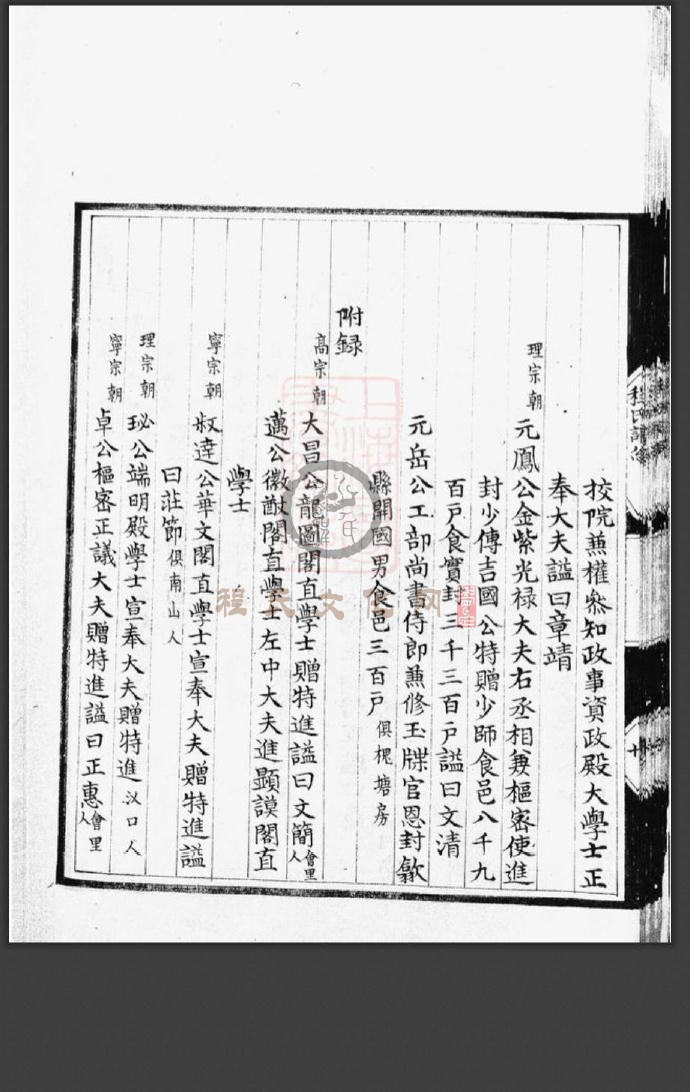 校院兼權叅知政事資政殿大學士正
奉大夫謚曰章靖
理宗朝 元鳳公金紫光禄大夫右丞相兼樞密使進
封少傅吉國公特贈少師食邑八千九
百戶食實封三千三百戶謚曰文清
元岳公工部尚書侍郎兼修玉牒官恩封歙
縣開國男食邑三百戶 俱槐塘房
附録
高宗朝 大昌公龍圖閣直學士贈特進謚曰文簡 會里人
邁公徽猷閣直學士左中大夫進顯謨閣直
學士
寧宗朝 叔逹公華文閣直學士宣奉大夫贈特進謚
曰莊節 俱南山人
理宗朝 珌公端明殿學士宣奉大夫贈特進 汊口人
寧宗朝 卓公樞密正議大夫贈特進謚曰正惠 會里人
程氏文化网